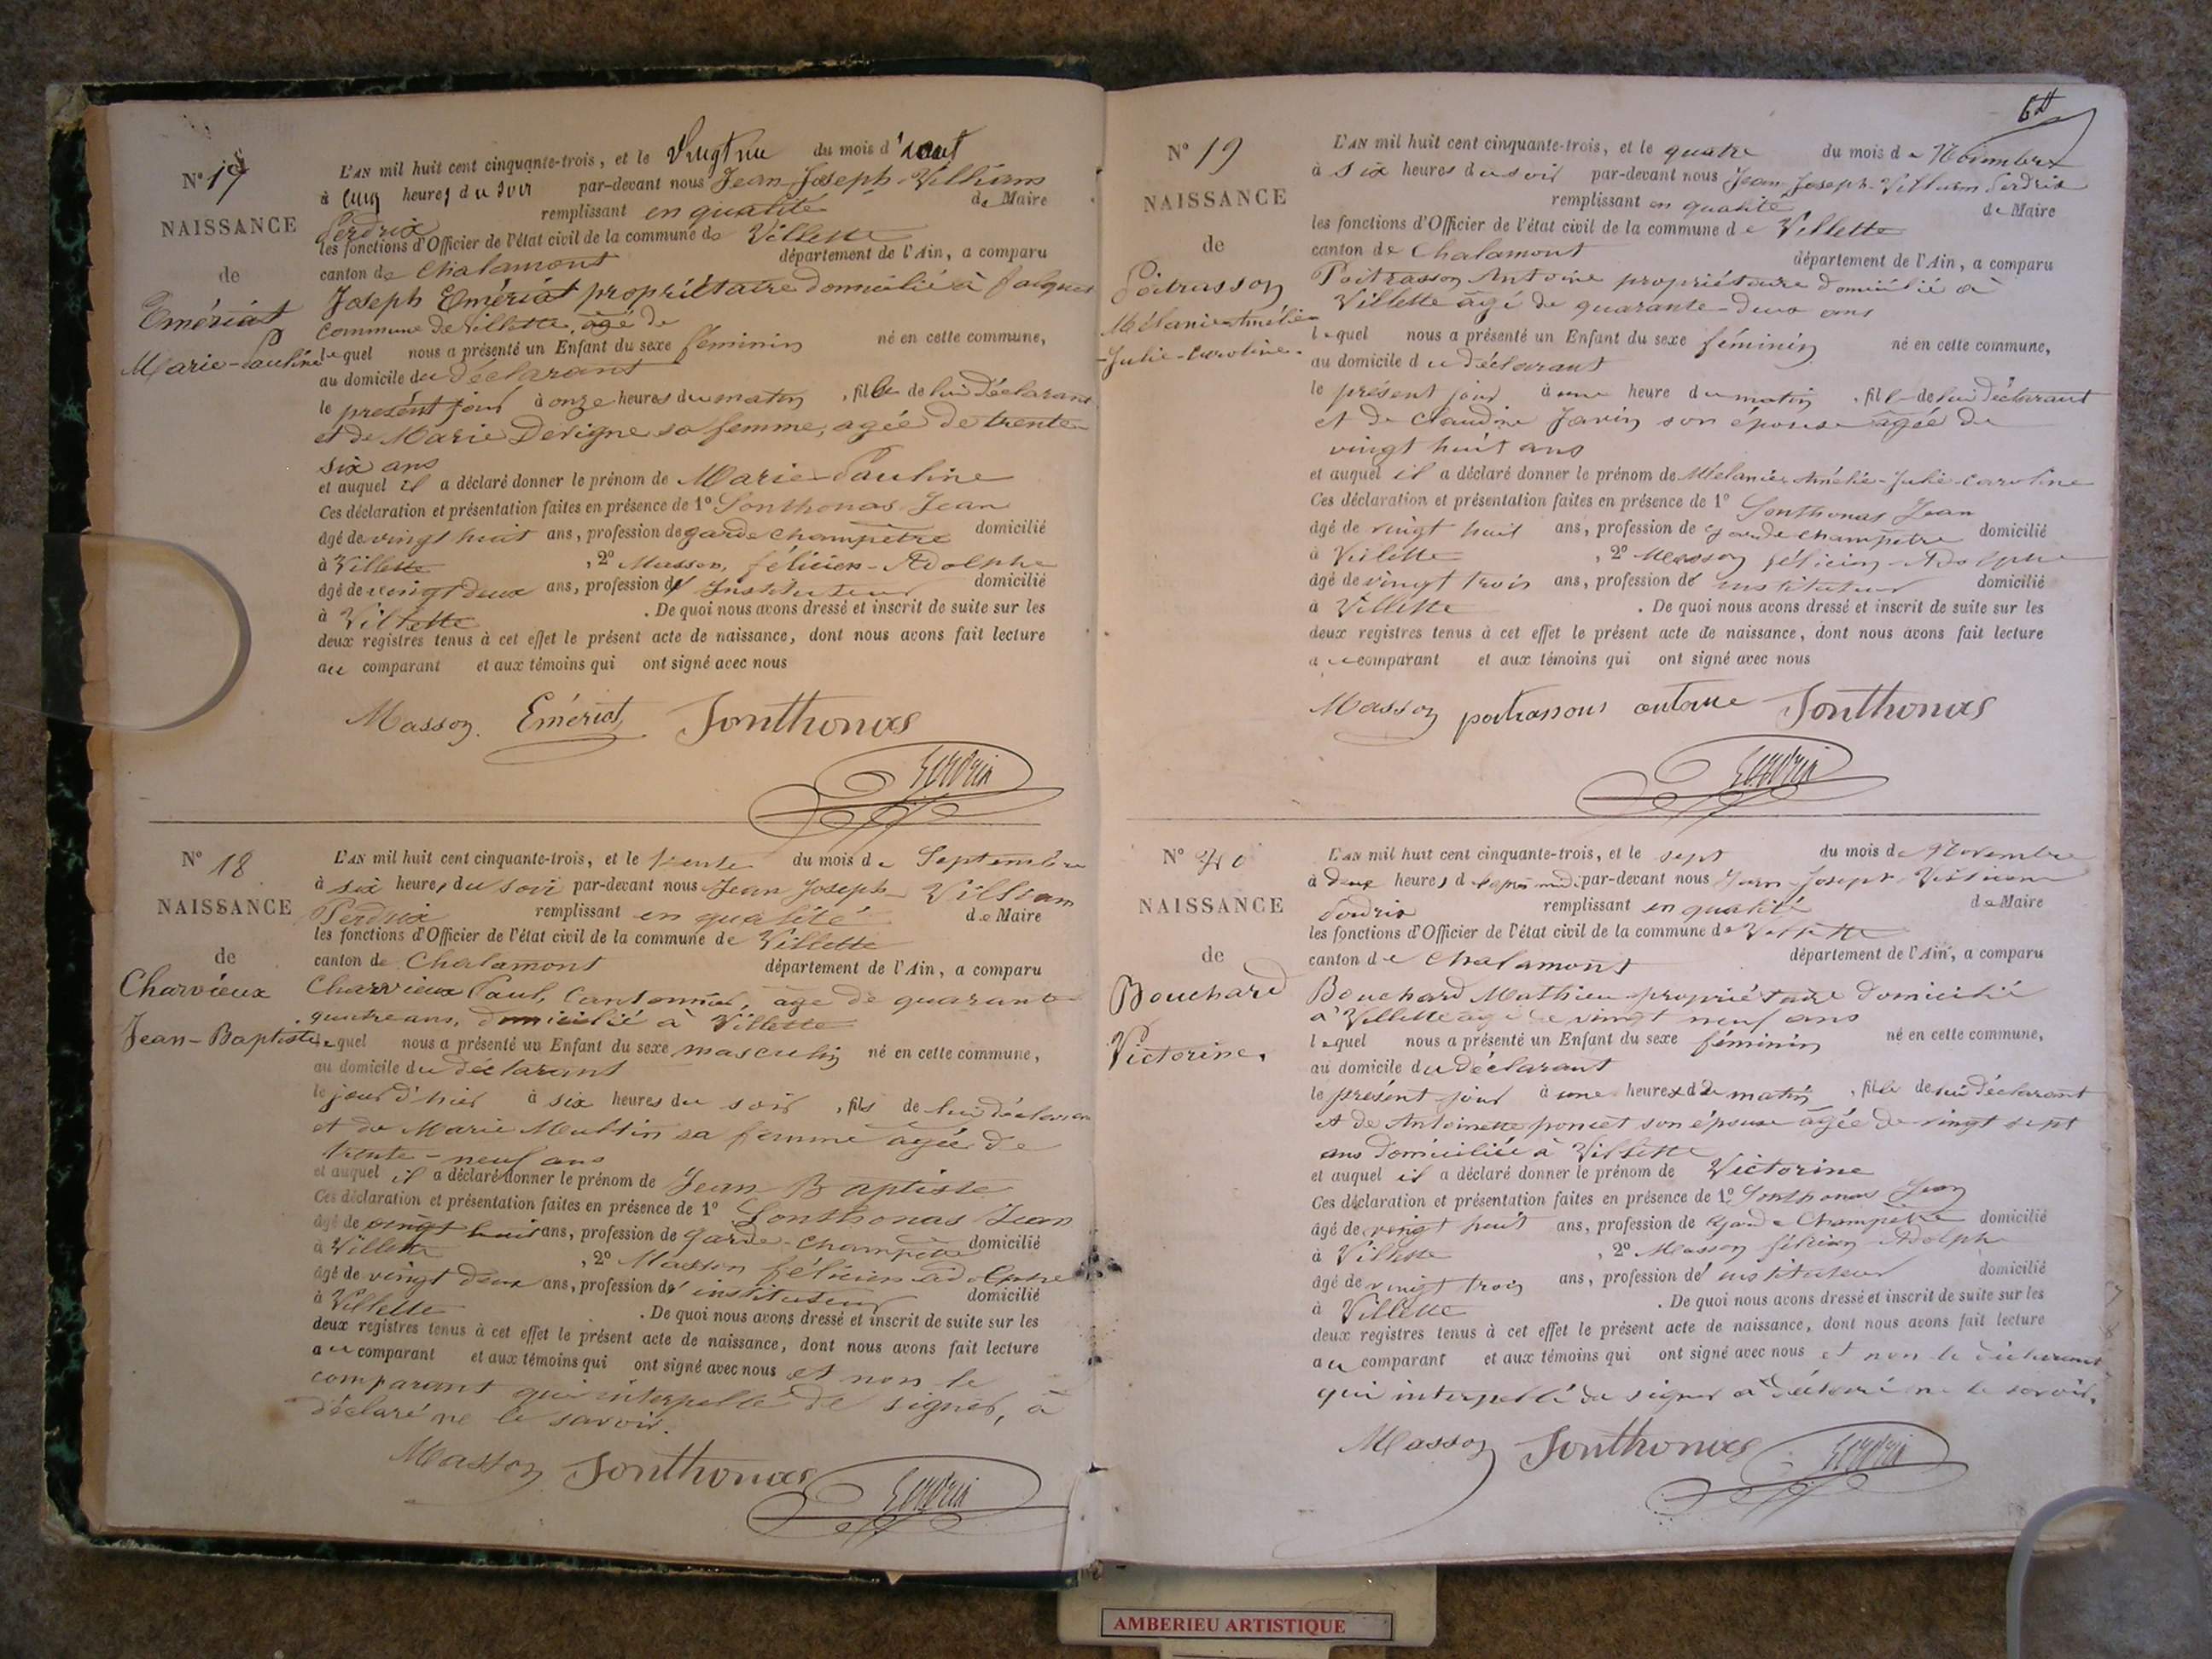 N° 17
NAISSANCE
de
Emériat
Marie-Pauline
L'AN mil huit cent cinquante-trois, et le Vingt un du mois d'aout
à cinq heures du soir par-devant nous Jean Joseph Villiam
Perdrix remplissant en qualité de Maire
les fonctions d'Officier de l'état civil de la commune de Villette
canton de Chalamont département de l'Ain, a comparu
Joseph Emériat propriétaire domicilié à
commune de Villette, agé de
lequel nous a présenté un Enfant du sexe féminin né en cette commune,
au domicile du déclarant
le présent jour à onze heures du matin, fille de lui déclarant
et de Marie Dévigne sa femme, agée de trente
six ans
et auquel il a déclaré donner le prénom de Marie-Pauline
Ces déclaration et présentation faites en présence de 1° Sonthonas Jean
âgé de vingt huit ans, profession de garde champetre domicilié
à Villette, 2° Masson, félicien-Adolphe
âgé de vingt deux ans, profession d' Instituteur domicilié
à Villette. De quoi nous avons dressé et inscrit de suite sur les
deux registres tenus à cet effet le présent acte de naissance, dont nous avons fait lecture
au comparant et aux témoins qui ont signé avec nous
Masson Emériat Sonthonas
Perdrix
N° 18
NAISSANCE
de
Charvieux
Jean-Baptiste
L'AN mil huit cent cinquante-trois, et le trente du mois de Septembre
à six heures du soir par-devant nous Jean Joseph Villiam
Perdrix remplissant en qualité de Maire
les fonctions d'Officier de l'état civil de la commune de Villette
canton de Chalamont département de l'Ain, a comparu
Charvieux Paul, Cantonnier, agé de quarante
quatre ans, domicilié à Villette
lequel nous a présenté un Enfant du sexe masculin né en cette commune,
au domicile du déclarant
le jour d'hier à six heures du soir, fils de lui déclarant
et de Marie Multin sa femme agée de
trente-neuf ans
et auquel il a déclaré donner le prénom de Jean Baptiste
Ces déclaration et présentation faites en présence de 1° Sonthonas Jean
âgé de vingt huit ans, profession de garde-champetre domicilié
à Villette, 2° Masson félicien adolphe
âgé de vingt deux ans, profession d' instituteur domicilié
à Villette. De quoi nous avons dressé et inscrit de suite sur les
deux registres tenus à cet effet le présent acte de naissance, dont nous avons fait lecture
au comparant et aux témoins qui ont signé avec nous et non le
comparant qui interpellé de signer, à
déclaré ne le savoir.
Masson Sonthonas Perdrix
N° 19
NAISSANCE
de
Poitrasson
Mélanie-Amélie
-Julie-Caroline.
L'AN mil huit cent cinquante-trois, et le quatre du mois de Novembre
à six heures du soir par-devant nous Jean Joseph Villiam Perdrix
remplissant en qualité de Maire
les fonctions d'Officier de l'état civil de la commune de Villette
canton de Chalamont département de l'Ain, a comparu
Poitrasson Antoine propriétaire domicilié à
Villette agé de quarante-deux ans
lequel nous a présenté un Enfant du sexe féminin né en cette commune,
au domicile du déclarant
le présent jour à une heure du matin, fille de lui déclarant
et de Claudine Javin son épouse agée de
vingt huit ans
et auquel il a déclaré donner le prénom de Mélanie-Amélie-Julie-Caroline
Ces déclaration et présentation faites en présence de 1° Sonthonas Jean
âgé de vingt huit ans, profession de garde champetre domicilié
à Villette, 2° Masson félicien Adolphe
âgé de vingt trois ans, profession de instituteur domicilié
à Villette. De quoi nous avons dressé et inscrit de suite sur les
deux registres tenus à cet effet le présent acte de naissance, dont nous avons fait lecture
au comparant et aux témoins qui ont signé avec nous
Masson Sonthonas
Perdrix
N° 20
NAISSANCE
de
Bouchard
Victorine.
L'AN mil huit cent cinquante-trois, et le sept du mois de Novembre
à deux heures d l'après midi par-devant nous Jean Joseph Villiam
Perdrix remplissant en qualité de Maire
les fonctions d'Officier de l'état civil de la commune de Villette
canton de Chalamont département de l'Ain, a comparu
Bouchard Mathieu propriétaire domicilié
à Villette agé de vingt neuf ans
lequel nous a présenté un Enfant du sexe féminin né en cette commune,
au domicile du déclarant
le présent jour à une heure du matin, fille de lui déclarant
et de Antoinette poncet son épouse agée de vingt sept
ans domiciliée à Villette
et auquel il a déclaré donner le prénom de Victorine
Ces déclaration et présentation faites en présence de 1° Sonthonas Jean
âgé de vingt huit ans, profession de garde Champetre domicilié
à Villette, 2° Masson félicien Adolphe
âgé de vingt trois ans, profession de instituteur domicilié
à Villette. De quoi nous avons dressé et inscrit de suite sur les
deux registres tenus à cet effet le présent acte de naissance, dont nous avons fait lecture
au comparant et aux témoins qui ont signé avec nous et non le déclarant
qui interpellé de signer a déclaré ne le savoir.
Masson Sonthonas Perdrix
AMBERIEU ARTISTIQUE